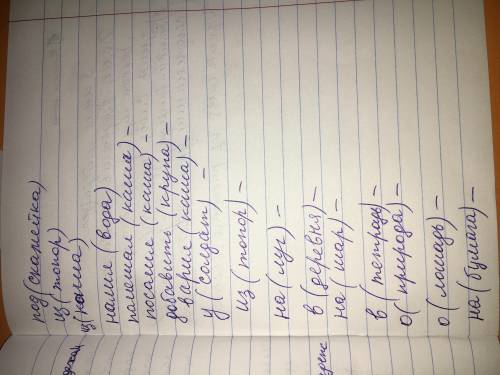 под (скамейка)
из (топор)
из (каша)
налил (вода)
помешал (каша) –
посолил (каша) –
добавить (крупа) –
варил (каша) –
у (солдат) –
из (топор) –
на (луг) –
в (деревня) –
на (шар) –
в (тетрадь) –
о (природа) –
о (лошадь) –
на (бумага) –